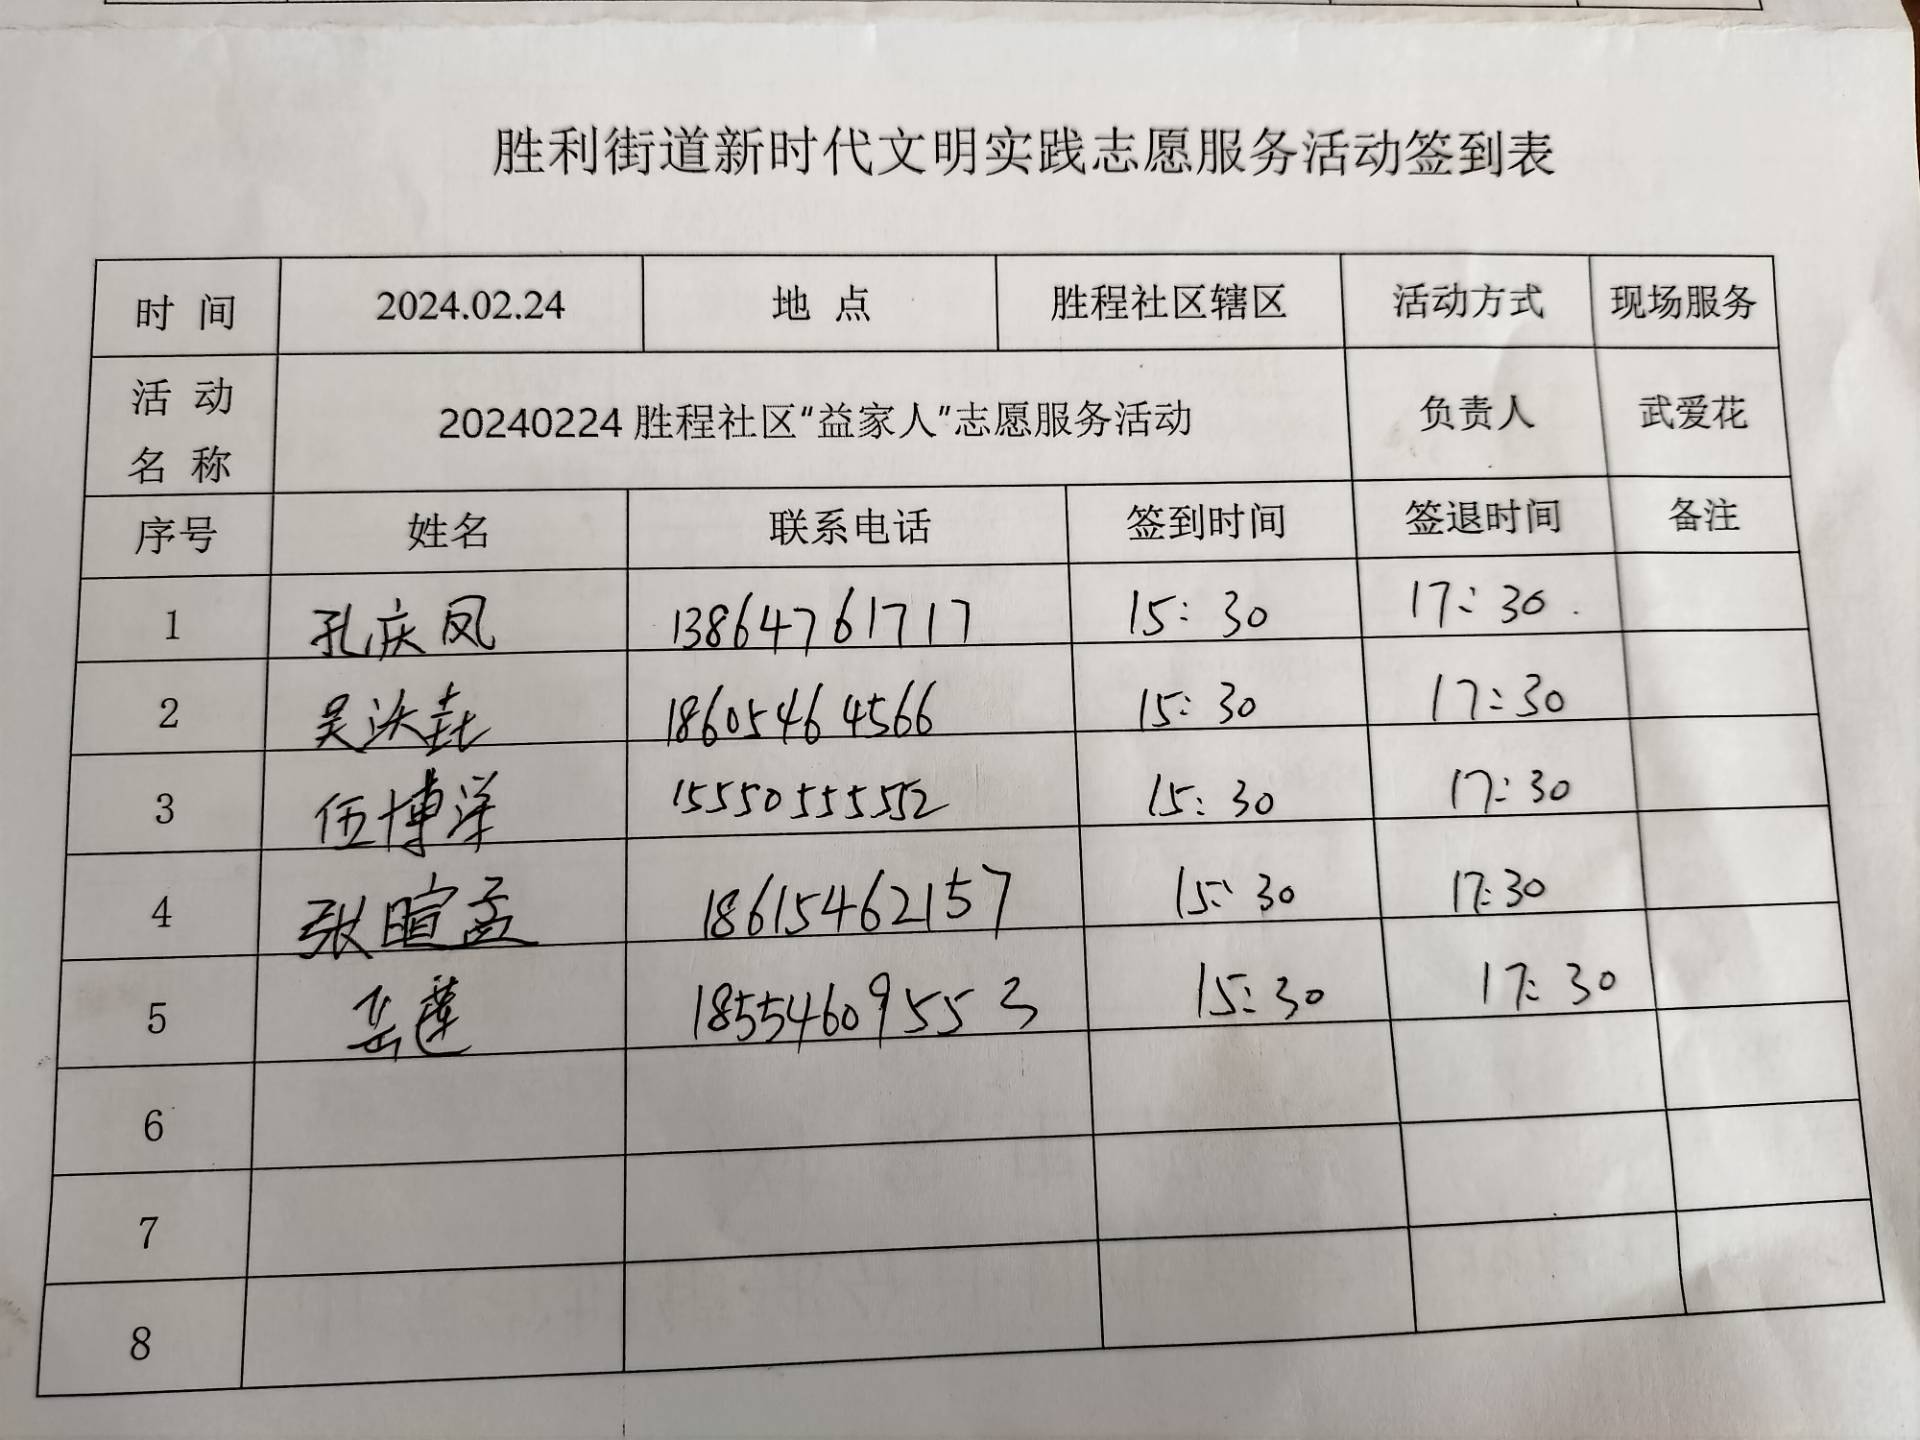 胜利街道新时代文明实践志愿服务活动签到表
时 间 2024.02.24 地 点 胜程社区辖区 活动方式 现场服务
活 动
名 称 20240224 胜程社区“益家人”志愿服务活动 负责人 武爱花
序号 姓名 联系电话 签到时间 签退时间 备注
1 孔庆凤 13864761717 15:30 17:30
2 吴 18605464566 15:30 17:30
3 伍博洋 15550555552 15:30 17:30
4 张暄孟 18615462157 15:30 17:30
5 岳莲 18554609553 15:30 17:30
6
7
8